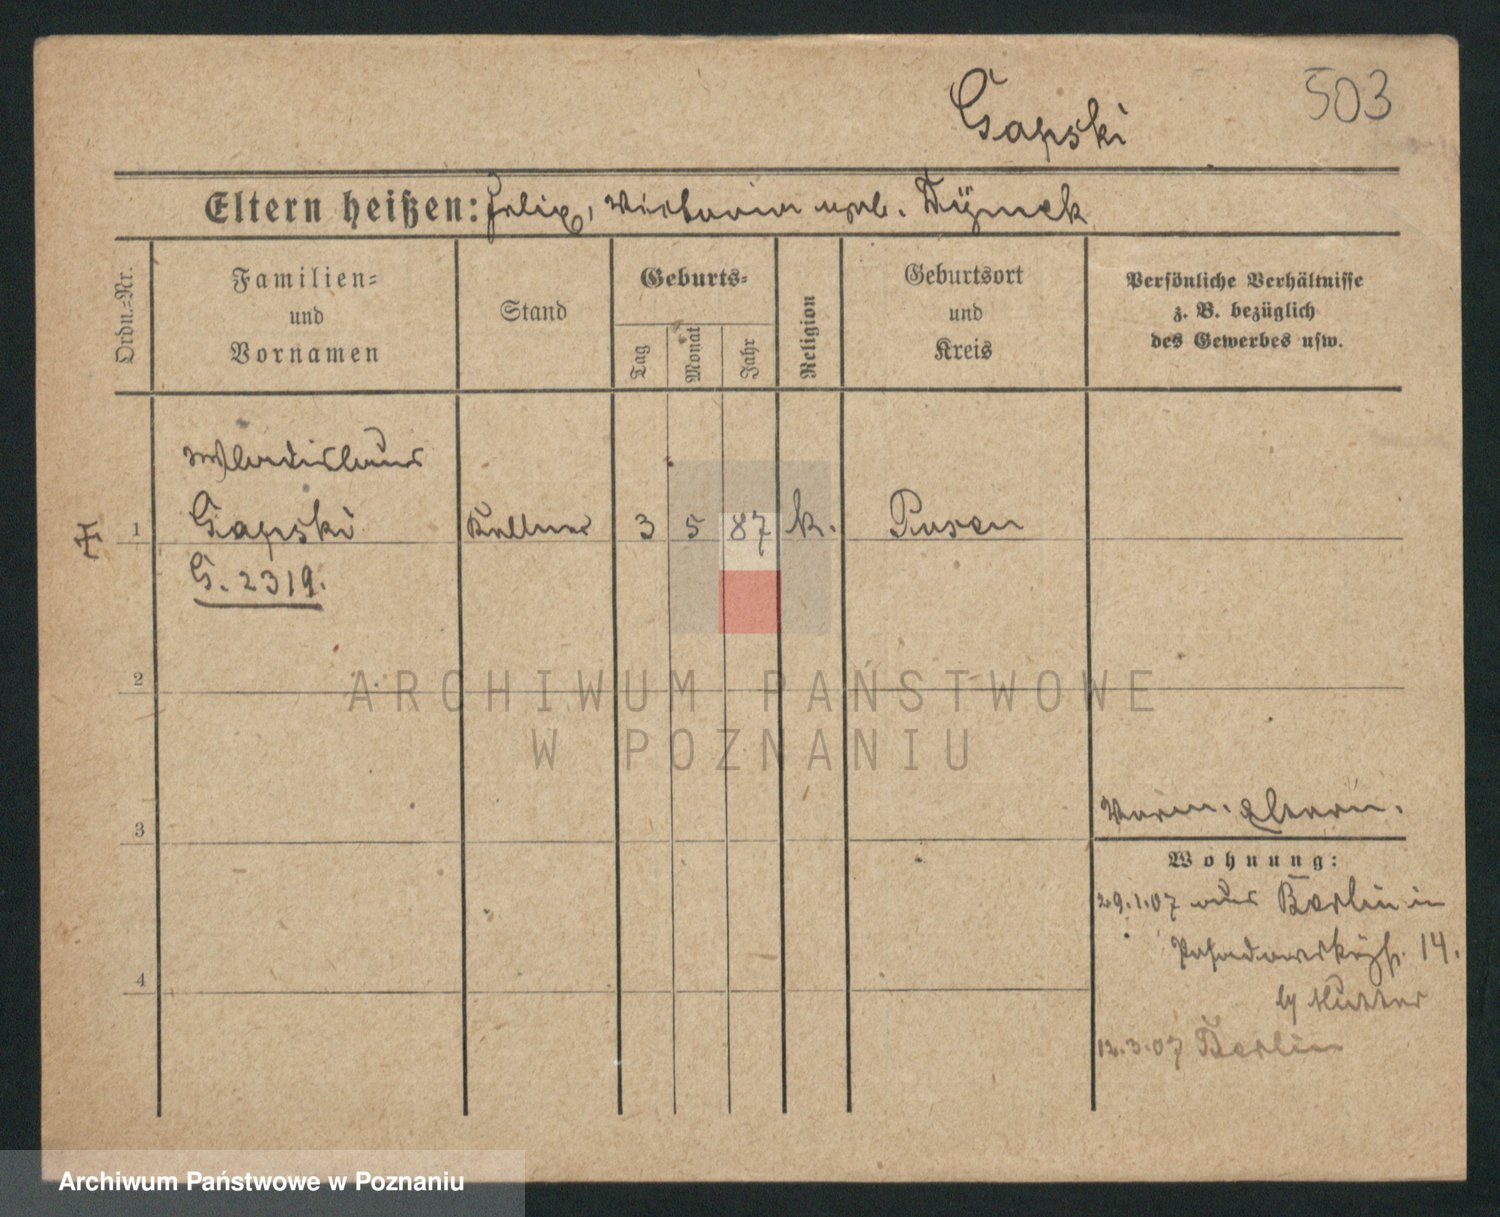 503
Gapski
Eltern heißen: Felix, Victoria geb. Dymek
Ordn.=Nr.
Familien=
und
Vornamen
Stand
Geburts=
Tag
Monat
Jahr
Religion
Geburtsort
und
Kreis
Persönliche Verhältnisse
z. B. bezüglich
des Gewerbes usw.
Wladislaus
1 Gapski Kellner 3 5 87 k. Posen
G. 2319.
2
ARCHIWUM PAŃSTWOWE
W POZNANIU
3
Verm. Eltern.
Wohnung:
29.1.07 aus Berlin in
14.
4
b/ Mutter
12.3.07 Berlin
Archiwum Państwowe w Poznaniu